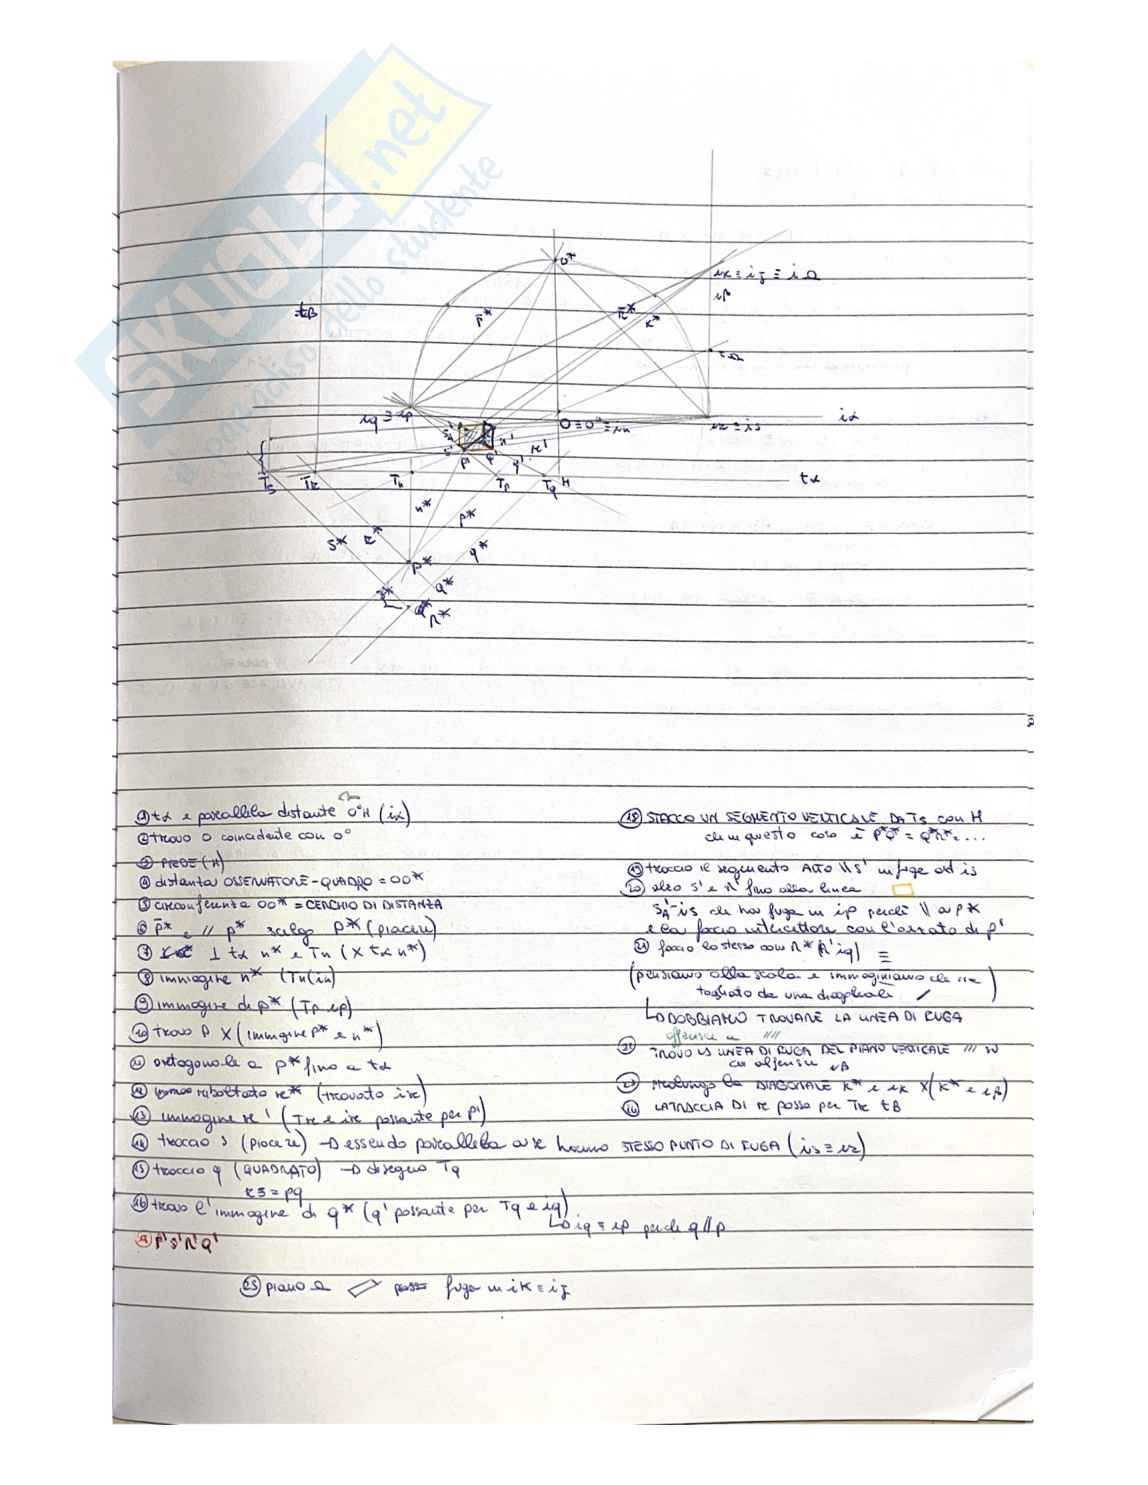 SKUOLA.net
il paradiso dello studente
O*
iκ ≡ iz ≡ iΩ
iβ
tβ
p̄*
r̄*
k*
tΩ
iq ≡ ip
O ≡ O° ≡ in
ir ≡ is
iα
Ts
Tr
Tn
Tp
Tq
H
tα
n*
p*
s*
r*
q*
P*
q*
Q*
R*
① tα e parallela distante O°H (iα)
② trovo O coincidente con O°
③ PIEDE (H)
④ distanza OSSERVATORE-QUADRO = OO*
⑤ circonferenza OO* = CERCHIO DI DISTANZA
⑥ p̄* e // p* scelgo P* (piacere)
⑦ ⊥ tα n* e Tn (X tα n*)
⑧ immagine n* (Tn(in)
⑨ immagine di p* (Tp ip)
⑩ trovo P X (immagine p* e n*)
⑪ ortogonale a p* fino a tα
⑫ ribaltato r* (trovato ir)
⑬ immagine r' (Tr e ir passante per P')
⑭ traccio s (piacere) → essendo parallela a r hanno STESSO PUNTO DI FUGA (is ≡ ir)
⑮ traccio q (QUADRATO) → disegno Tq
rs = pq
⑯ trovo l'immagine di q* (q' passante per Tq e iq)
↳ iq ≡ ip perché q // p
P' S' R' Q'
㉕ piano Ω fuga in iK ≡ iz
⑱ STACCO UN SEGMENTO VERTICALE DA Ts CON H
che in questo caso è P*Q* = Q*R* = ...
⑲ traccio il segmento ALTO // S' in fuga ad is
⑳ alzo s' e r' fino alla linea
S'A - is che ha fuga in ip perché // a p*
e la faccio intercettare con l'alzato di p'
㉑ faccio lo stesso con R* (R' iq) ≡
(pensiamo alla scala e immaginiamo che sia
tagliata da una diagonale
↳ DOBBIAMO TROVARE LA LINEA DI FUGA
TROVO LA LINEA DI FUGA DEL PIANO VERTICALE
iβ
㉓ prolungo la DIAGONALE K* e iK X (K* e iβ)
㉔ LA TRACCIA DI r passa per Tr tβ